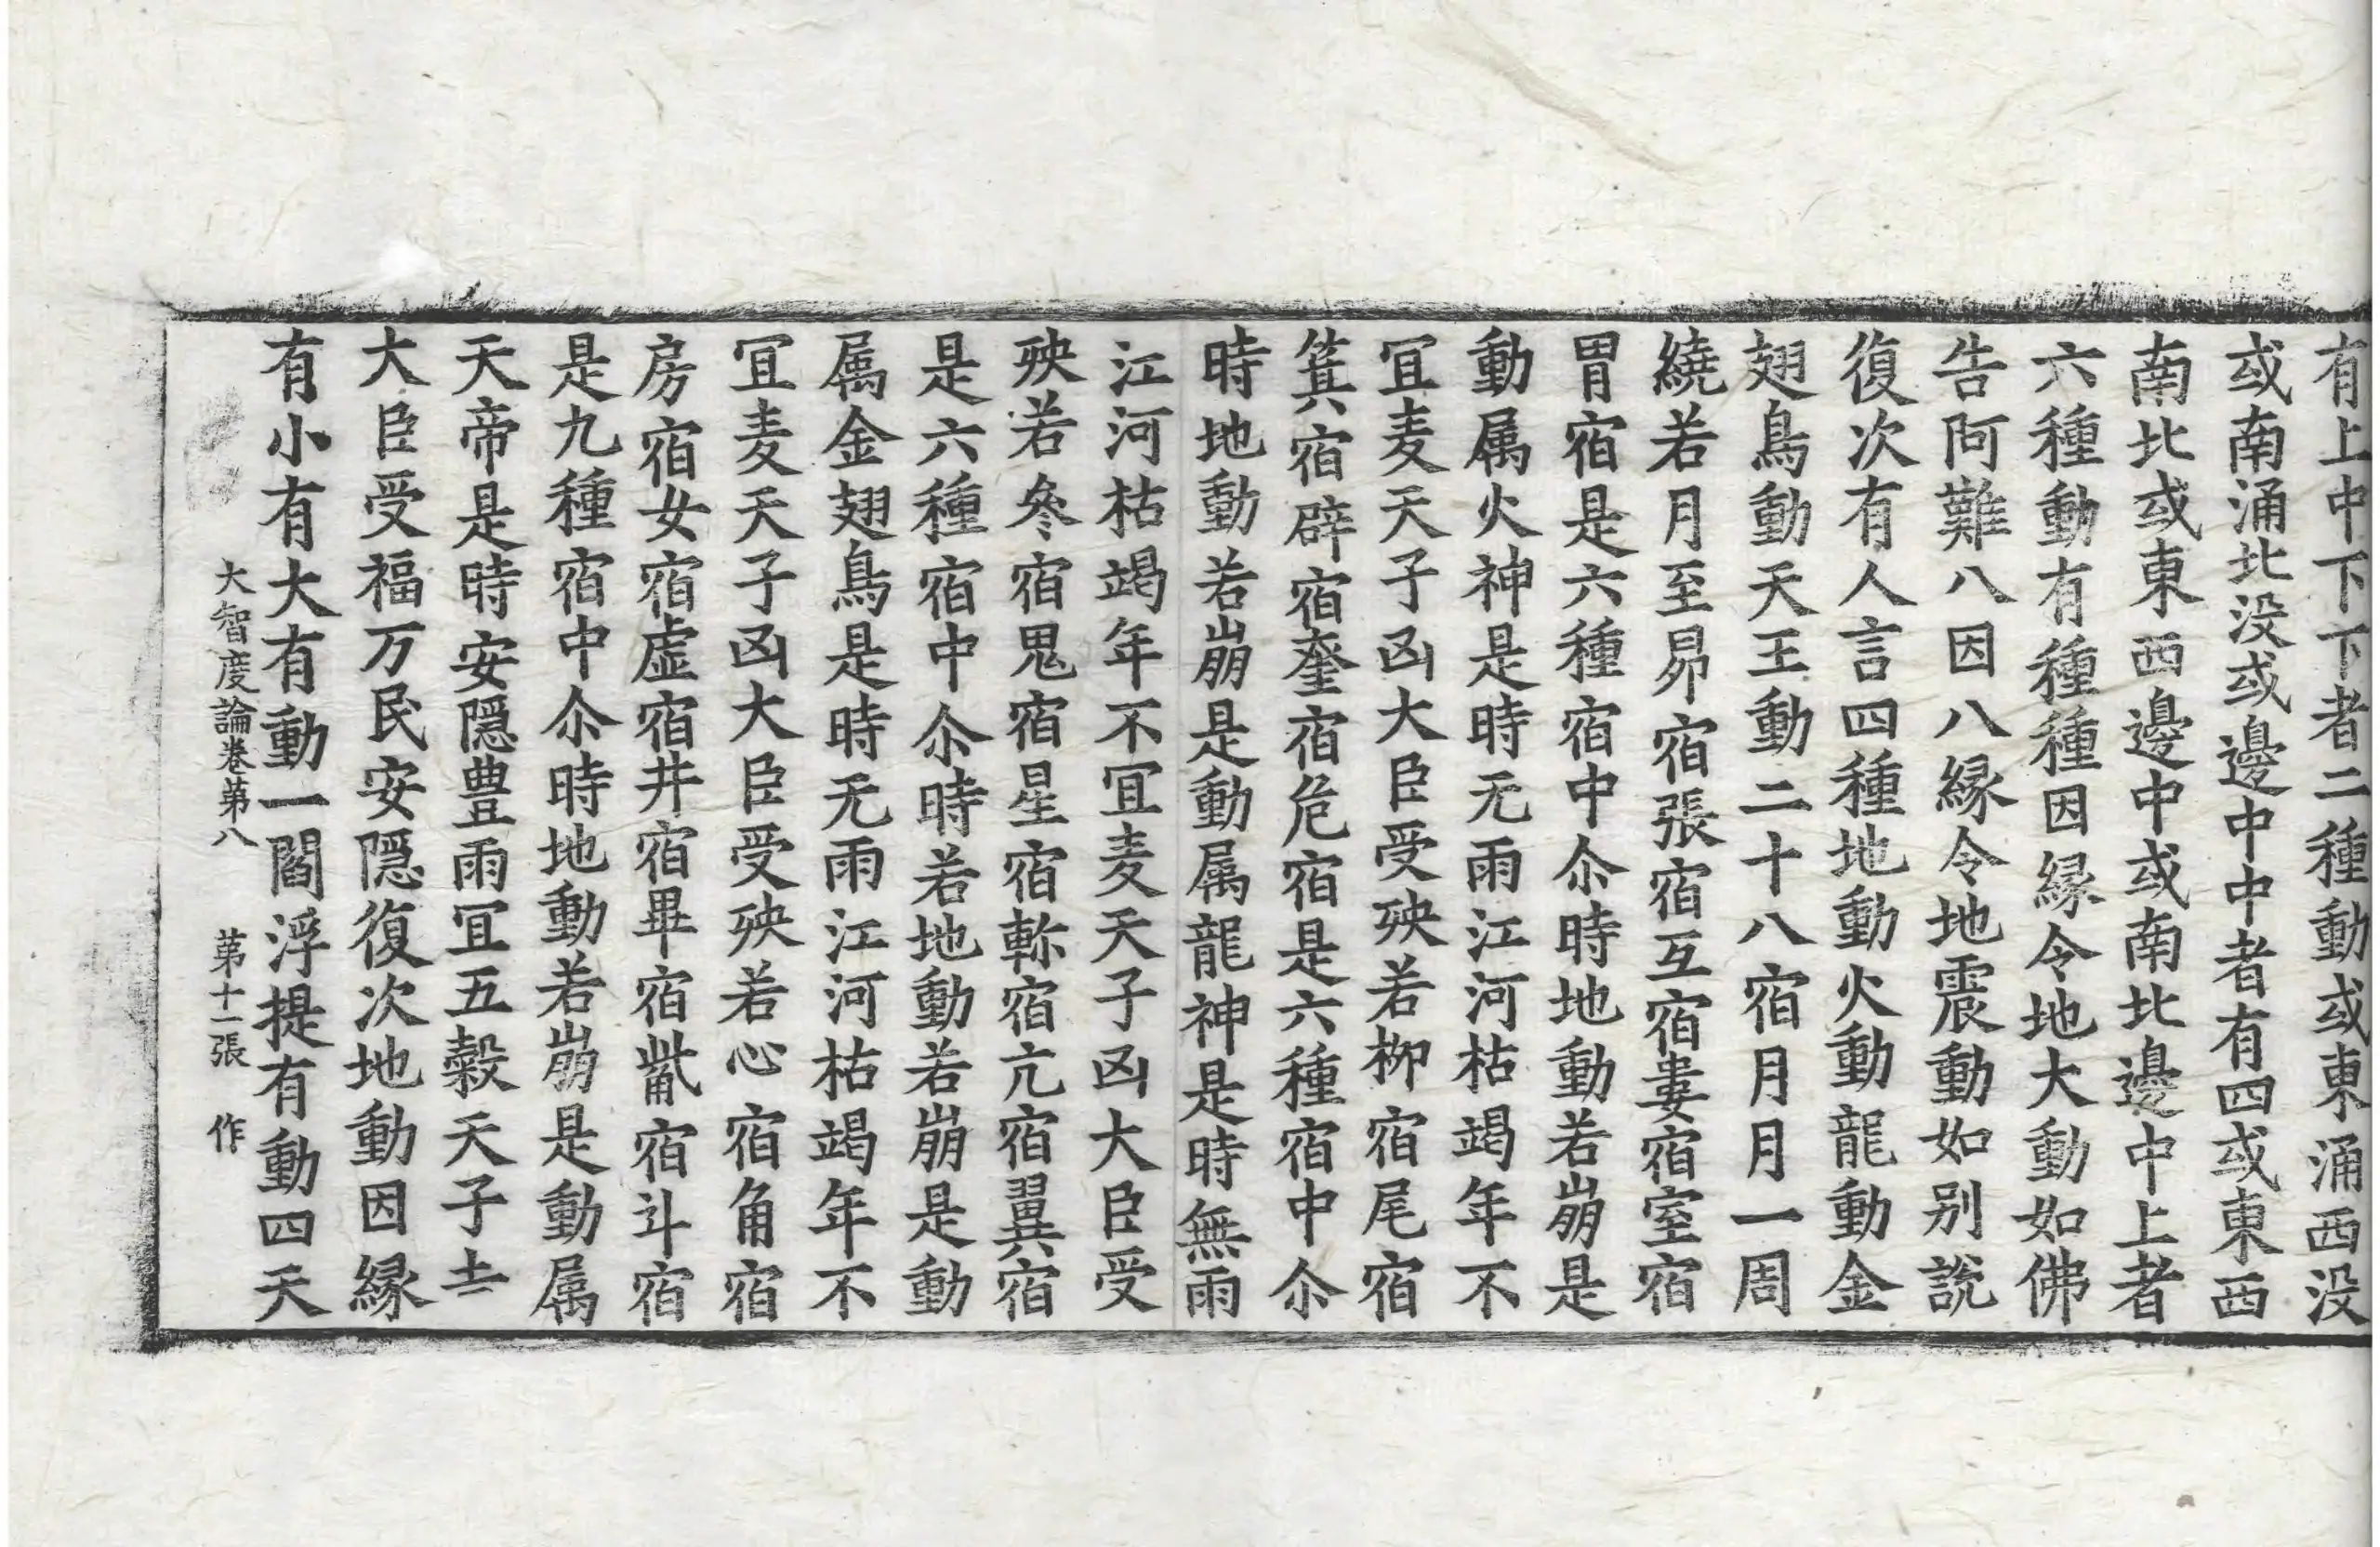 有上中下下者二種動或東涌西没
或南涌北没或邊中中者有四或東西
南北或東西邊中或南北邊中上者
六種動有種種因緣令地大動如佛
告阿難八因八緣令地震動如别説
復次有人言四種地動火動龍動金
翅鳥動天王動二十八宿月月一周
繞若月至昴宿張宿互宿婁宿室宿
胃宿是六種宿中尒時地動若崩是
動属火神是時无雨江河枯竭年不
冝麦天子凶大臣受殃若柳宿尾宿
箕宿辟宿奎宿危宿是六種宿中尒
時地動若崩是動属龍神是時無雨
江河枯竭年不冝麦天子凶大臣受
殃若參宿鬼宿星宿軫宿亢宿翼宿
是六種宿中尒時若地動若崩是動
属金翅鳥是時无雨江河枯竭年不
冝麦天子凶大臣受殃若心宿角宿
房宿女宿虚宿井宿畢宿觜宿斗宿
是九種宿中尒時地動若崩是動属
天帝是時安隱豊雨冝五穀天子吉
大臣受福万民安隱復次地動因緣
有小有大有動一閻浮提有動四天
大智度論卷第八　第十一張　作